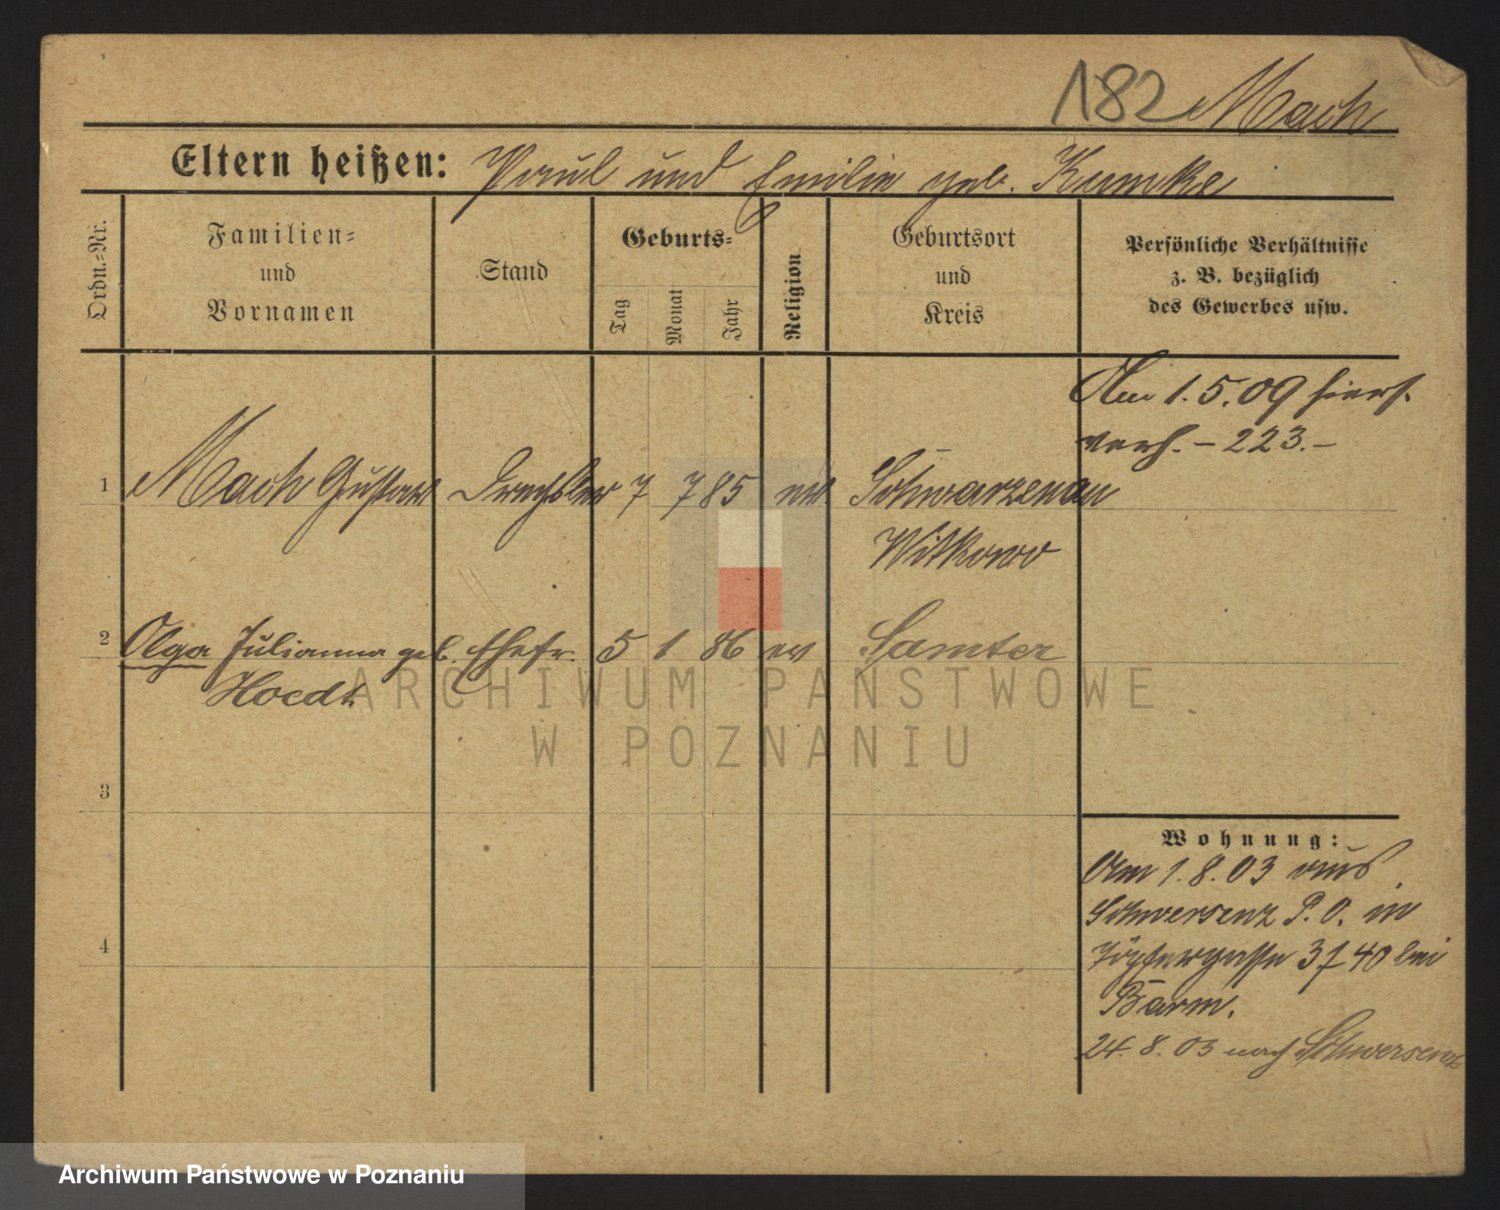 182 Mach
Eltern heißen: Paul und Emilie geb. Kumke
Ordn.-Nr.
Familien-
und
Vornamen
Stand
Geburts-
Tag
Monat
Jahr
Religion
Geburtsort
und
Kreis
Persönliche Verhältnisse
z. B. bezüglich
des Gewerbes usw.
Am 1.5.09 hiers.
verh. – 223. –
1 Mach Gustav Drechsler 7 7 85 Schwarzenau
Witkowo
2 Olga Julianna geb. Ehefr. 5 1 86 ev Samter
Hoedt
3
4
Wohnung:
Am 1.8.03 aus
Schwersenz P.O. in
Töpfergasse 3 40 bei
Barm.
24.8.03 nach Schwersenz
ARCHIWUM PAŃSTWOWE
W POZNANIU
Archiwum Państwowe w Poznaniu